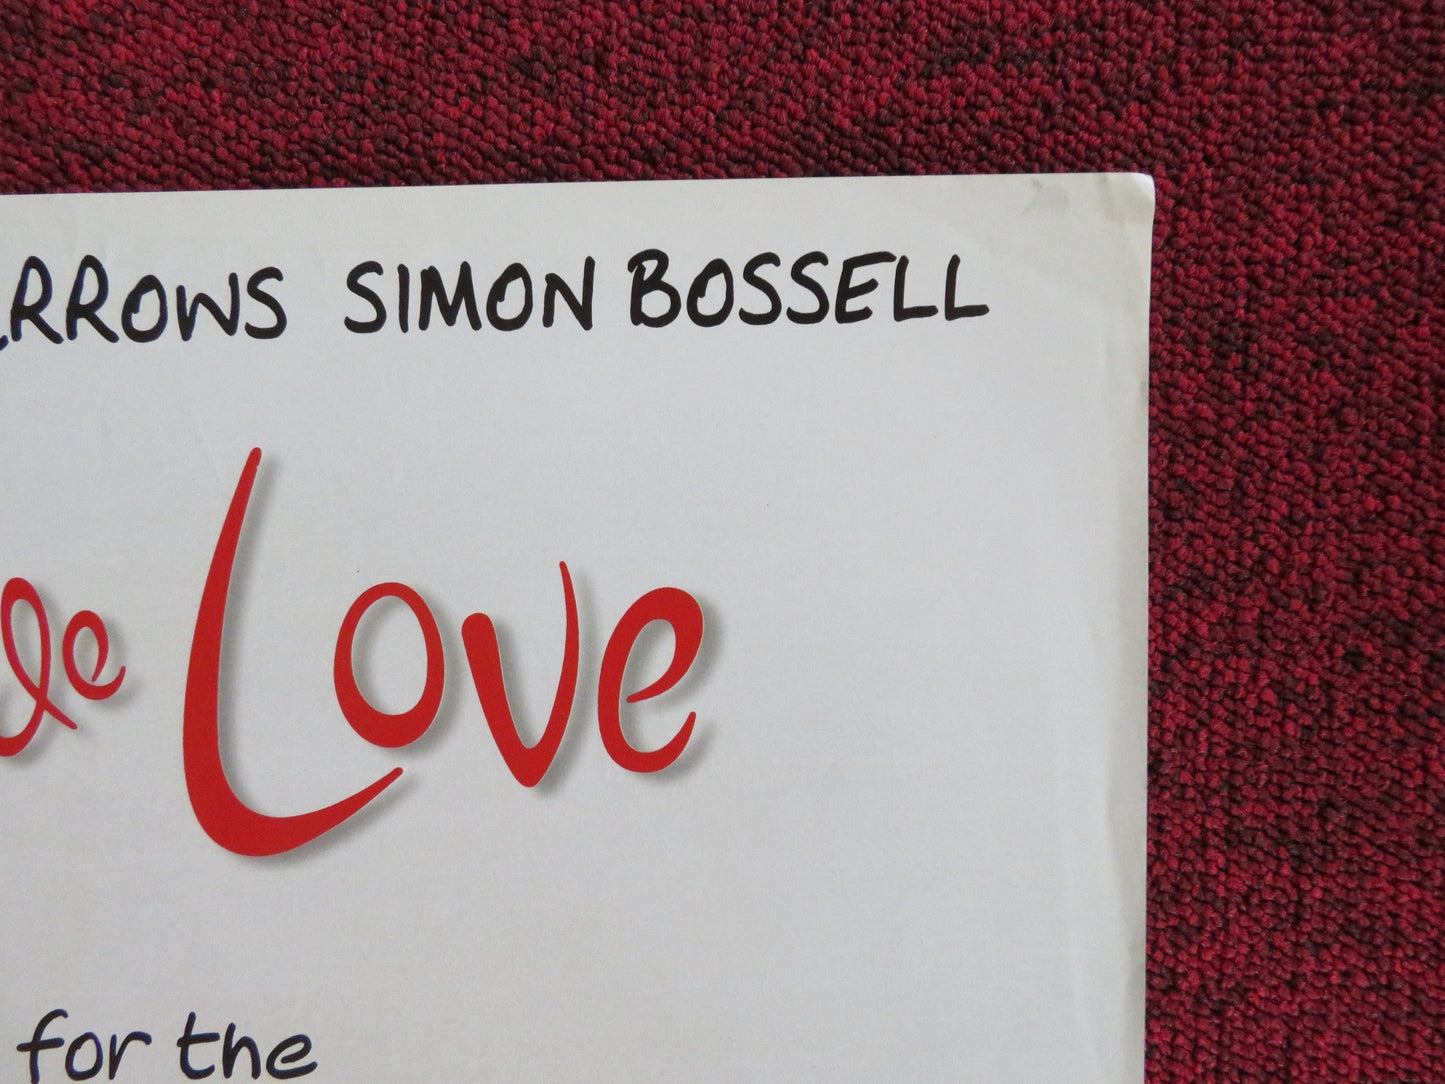 ARROWS SIMON BOSSELL
le Love
for the